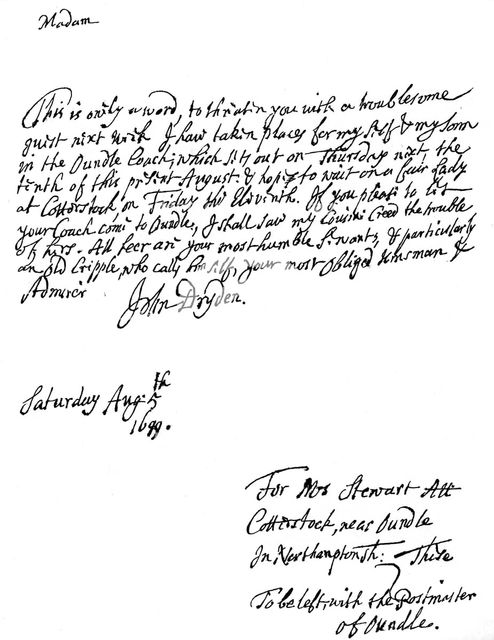 Madam
This is only a word, to threaten you with a troublesome
guest next week. I have taken places for my self & my Sonn
in the Oundle Coach, which sets out on Thursday next, the
tenth of this present August: & hope to wait on a fair Lady
at Cotterstock, on Friday the Eleventh. If you please to let
your Coach come to Oundle, I shall save my Cousin Creed the trouble
of hers. All heer are your most humble Servants, & particularly
an old Cripple, who calls him self, your most Obliged Kinsman &
Admirer
John Dryden.
Saturday Aug: 5th
1699.
For Mrs Stewart Att
Cotterstock, near Oundle
In Northamptonsh: These
To be left with the Postmaster
of Oundle.